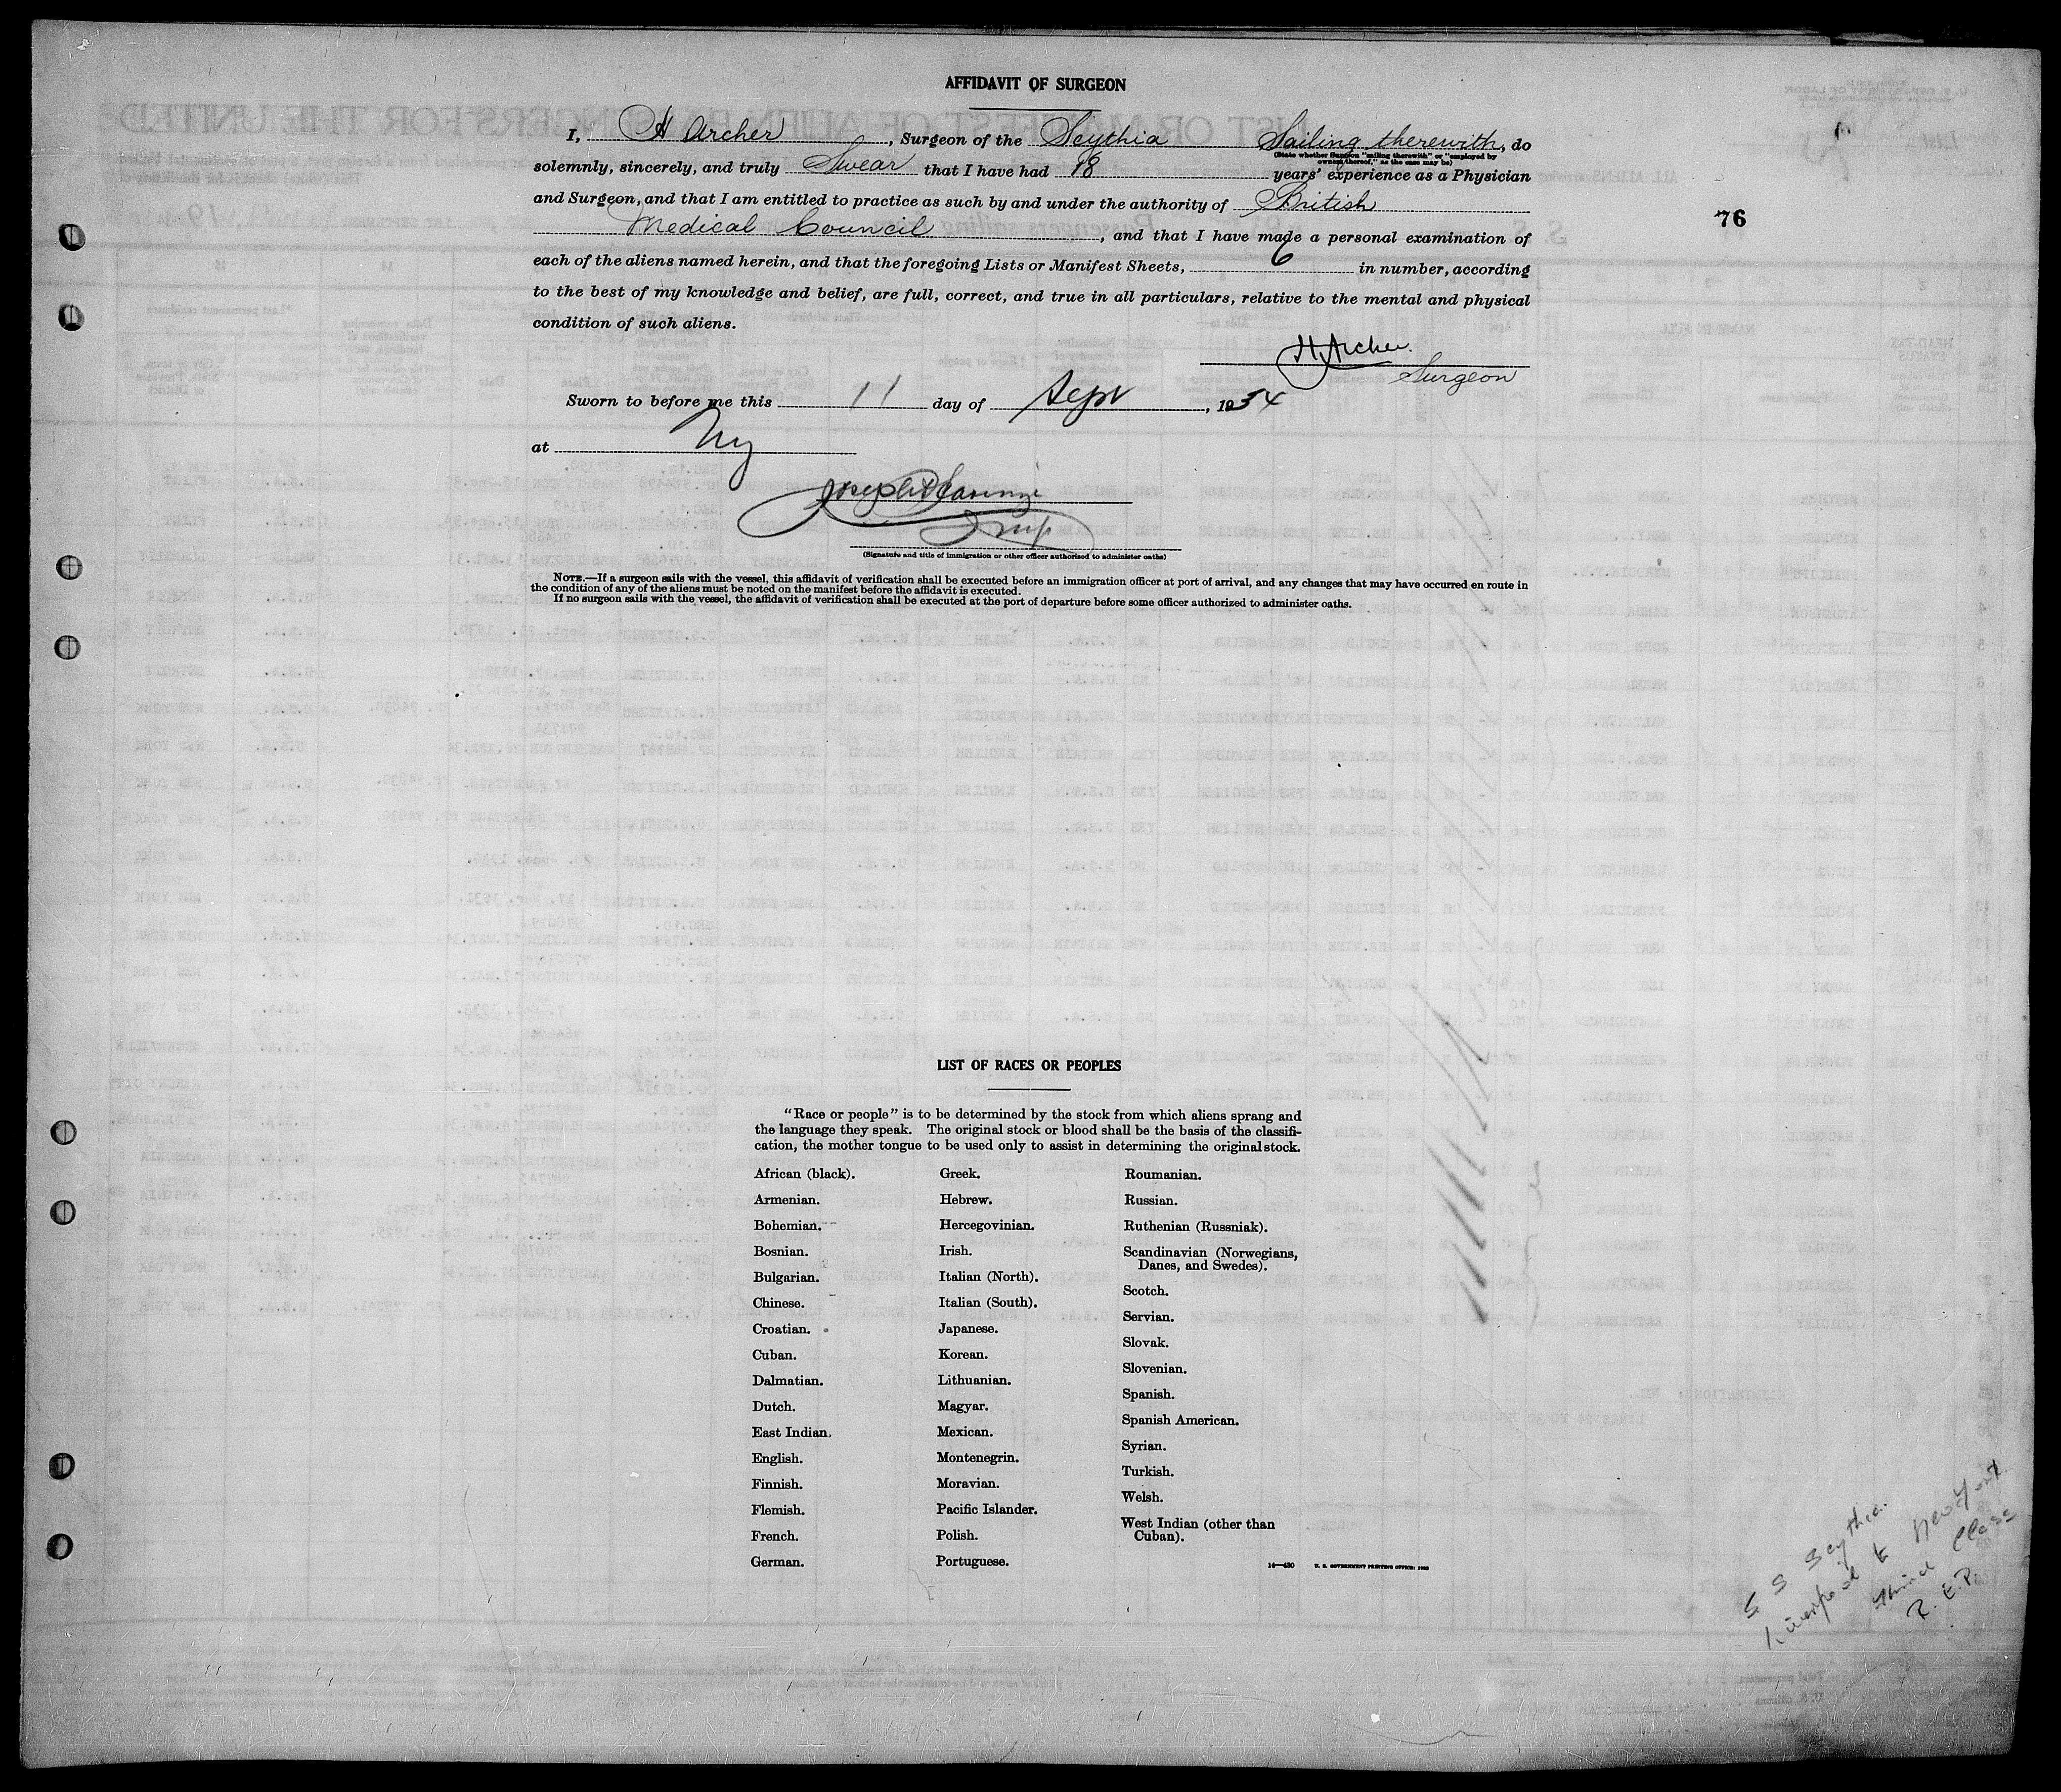 AFFIDAVIT OF SURGEON
I, H Archer, Surgeon of the Scythia Sailing therewith, do
(State whether Surgeon "sailing therewith" or "employed by
owners thereof," as the case may be)
solemnly, sincerely, and truly Swear that I have had 18 years' experience as a Physician
and Surgeon, and that I am entitled to practice as such by and under the authority of British
76
Medical Council, and that I have made a personal examination of
each of the aliens named herein, and that the foregoing Lists or Manifest Sheets, 6 in number, according
to the best of my knowledge and belief, are full, correct, and true in all particulars, relative to the mental and physical
condition of such aliens.
H Archer.
Surgeon
Sworn to before me this 11 day of Sept, 1934
at Ny
(Signature and title of immigration or other officer authorized to administer oaths)
NOTE.—If a surgeon sails with the vessel, this affidavit of verification shall be executed before an immigration officer at port of arrival, and any changes that may have occurred en route in
the condition of any of the aliens must be noted on the manifest before the affidavit is executed.
If no surgeon sails with the vessel, the affidavit of verification shall be executed at the port of departure before some officer authorized to administer oaths.
LIST OF RACES OR PEOPLES
"Race or people" is to be determined by the stock from which aliens sprang and
the language they speak. The original stock or blood shall be the basis of the classifi-
cation, the mother tongue to be used only to assist in determining the original stock.
African (black).
Armenian.
Bohemian.
Bosnian.
Bulgarian.
Chinese.
Croatian.
Cuban.
Dalmatian.
Dutch.
East Indian.
English.
Finnish.
Flemish.
French.
German.
Greek.
Hebrew.
Hercegovinian.
Irish.
Italian (North).
Italian (South).
Japanese.
Korean.
Lithuanian.
Magyar.
Mexican.
Montenegrin.
Moravian.
Pacific Islander.
Polish.
Portuguese.
Roumanian.
Russian.
Ruthenian (Russniak).
Scandinavian (Norwegians,
Danes, and Swedes).
Scotch.
Servian.
Slovak.
Slovenian.
Spanish.
Spanish American.
Syrian.
Turkish.
Welsh.
West Indian (other than
Cuban).
14—430 U. S. GOVERNMENT PRINTING OFFICE:
S S Scythia.
Liverpool to New York
third Class
R. E. P.